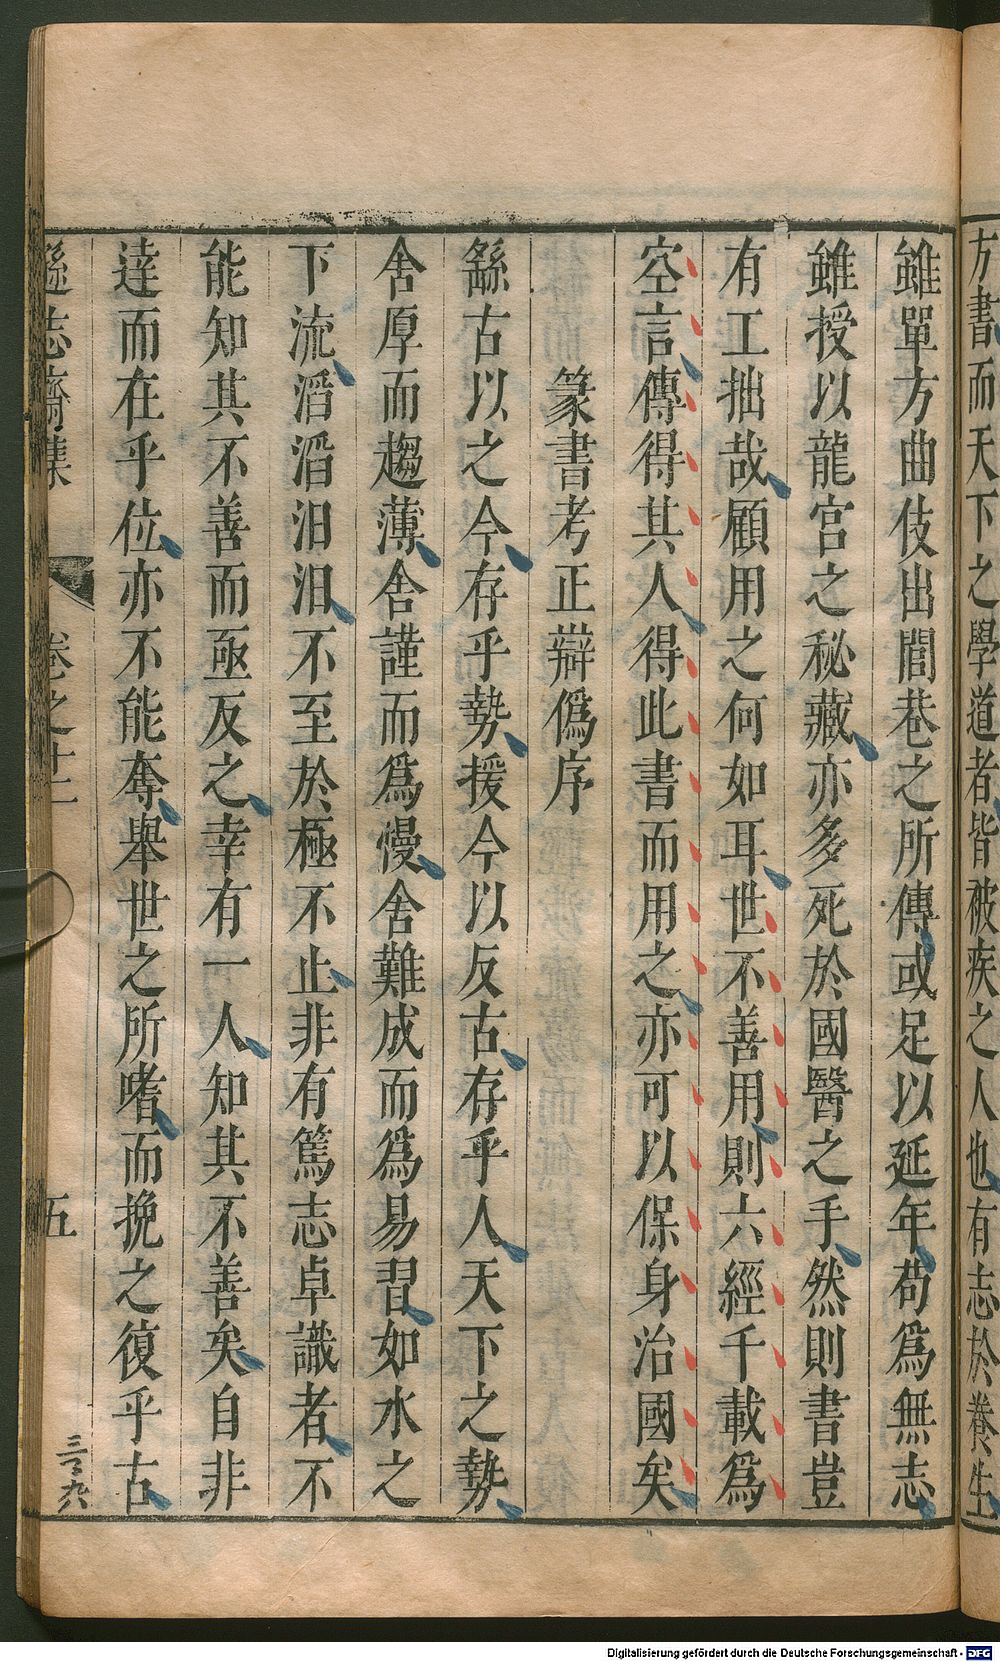 方書而天下之學道者皆被疾之人也有志於養生
雖單方曲伎出閭巷之所傳或足以延年苟爲無志
雖授以龍宮之秘藏亦多死於國醫之手然則書豈
有工拙哉顧用之何如耳世不善用則六經千載爲
空言傳得其人得此書而用之亦可以保身治國矣
篆書考正辯僞序
繇古以之今存乎勢援今以反古存乎人天下之勢
舍厚而趨薄舍謹而爲慢舍難成而爲易習如水之
下流滔滔汨汨不至於極不止非有篤志卓識者不
能知其不善而亟反之幸有一人知其不善矣自非
達而在乎位亦不能奪舉世之所嗜而挽之復乎古
遜志齋集 卷之十二 五
三百九六
Digitalisierung gefördert durch die Deutsche Forschungsgemeinschaft - DFG